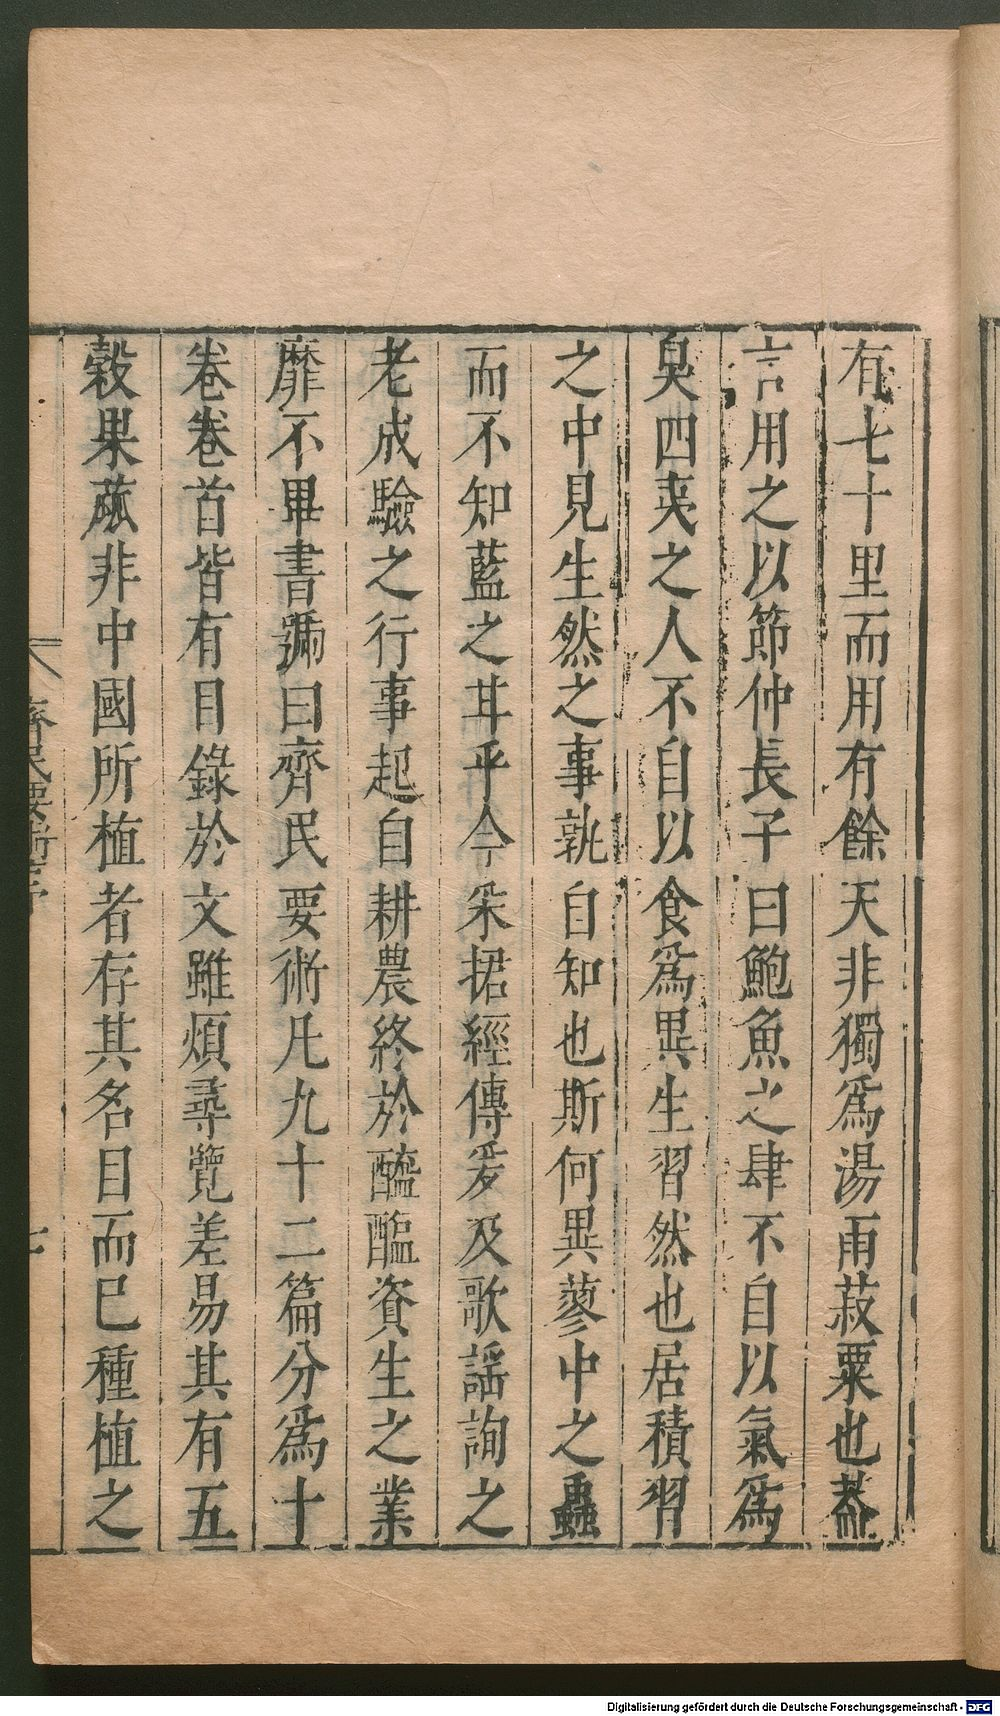 有七十里而用有餘天非獨爲湯雨菽粟也葢
言用之以節仲長子曰鮑魚之肆不自以氣爲
臭四夷之人不自以食爲異生習然也居積習
之中見生然之事孰自知也斯何異蓼中之蟲
而不知藍之甘乎今采捃經傳爰及歌謡詢之
老成驗之行事起自耕農終於醯醢資生之業
靡不畢書號曰齊民要術凡九十二篇分爲十
卷卷首皆有目錄於文雖煩尋覽差易其有五
穀果蓏非中國所植者存其名目而已種植之
齊民要術序
七
Digitalisierung gefördert durch die Deutsche Forschungsgemeinschaft - DFG